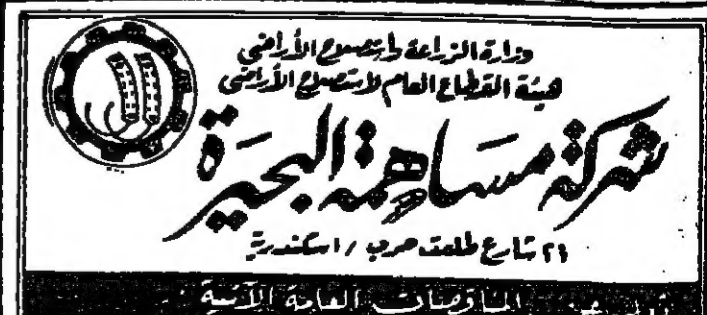 وزارة الزراعة واستصلاح الأراضى
هيئة القطاع العام لاستصلاح الأراضى
شركة مساهمة البحيرة
٢١ شارع طلعت حرب / اسكندرية
تعلن عن المناقصات العامة الآتية